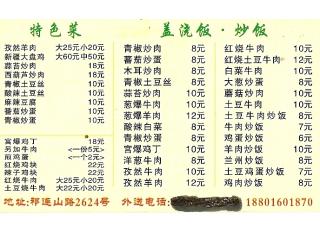 特色菜
孜然羊肉 大25元小20元
新疆大盘鸡 大60元中50元
蒜苔炒肉 18元
西葫芦炒肉 18元
青椒土豆丝 10元
酸辣土豆丝 10元
麻辣豆腐 10元
蕃茄炒蛋 10元
青椒炒蛋 10元
宫爆鸡丁 18元
另加牛肉 <一份5元>
煎鸡蛋 <一个2元>
红烧鸡块 22元
辣子鸡块 22元
红烧牛肉 大25元小20元
土豆烧牛肉 大22元小20元
盖浇饭·炒饭
青椒炒肉 8元
蕃茄炒蛋 8元
木耳炒肉 8元
青椒土豆丝 7元
蒜苔炒肉 8元
葱爆牛肉 10元
葱爆羊肉 12元
酸辣白菜 7元
青椒炒蛋 8元
宫爆鸡丁 10元
洋葱炒肉 8元
孜然牛肉 10元
孜然羊肉 12元
红烧牛肉 10元
红烧土豆牛肉 12元
白菜牛肉 10元
大葱炒蛋 8元
蘑菇炒肉 10元
土豆牛肉 10元
土豆牛肉炒饭 8元
牛肉炒饭 7元
鸡蛋炒饭 6元
羊肉炒饭 8元
兰州炒饭 8元
土豆鸡蛋炒饭 7元
孜然鸡蛋炒饭 6元
地址:祁连山路2624号 外送电话: 18801601870